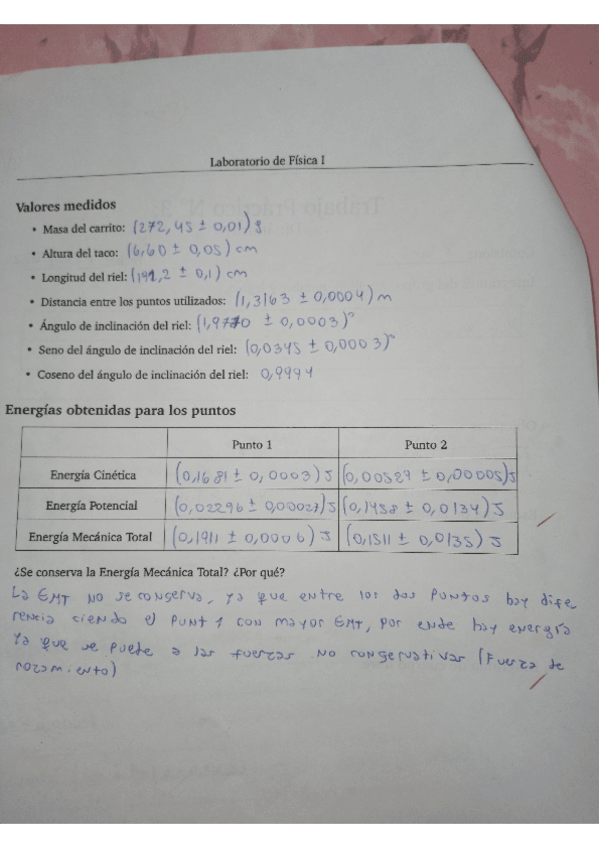 Laboratorio de Física I
Valores medidos
• Masa del carrito: (272,45 ± 0,01) g
• Altura del taco: (6,60 ± 0,05) cm
• Longitud del riel: (191,2 ± 0,1) cm
• Distancia entre los puntos utilizados: (1,3163 ± 0,0004) m
• Ángulo de inclinación del riel: ( ± 0,0003)°
• Seno del ángulo de inclinación del riel: (0,0345 ± 0,0003)°
• Coseno del ángulo de inclinación del riel: 0,9994
Energías obtenidas para los puntos
Punto 1 Punto 2
Energía Cinética (0,1681 ± 0,0003) J (0,00529 ± 0,00005) J
Energía Potencial (0,02296 ± 0,00027) J (0,1458 ± 0,0134) J
Energía Mecánica Total (0,1911 ± 0,0006) J (0,1511 ± 0,0135) J
¿Se conserva la Energía Mecánica Total? ¿Por qué?
La EMT no se conserva, ya que entre los dos puntos hay dife
rencia ciendo el punt 1 con mayor EMT, por ende hay energía
ya que se puede a las fuerzas no conservativas (Fuerza de
rozamiento)